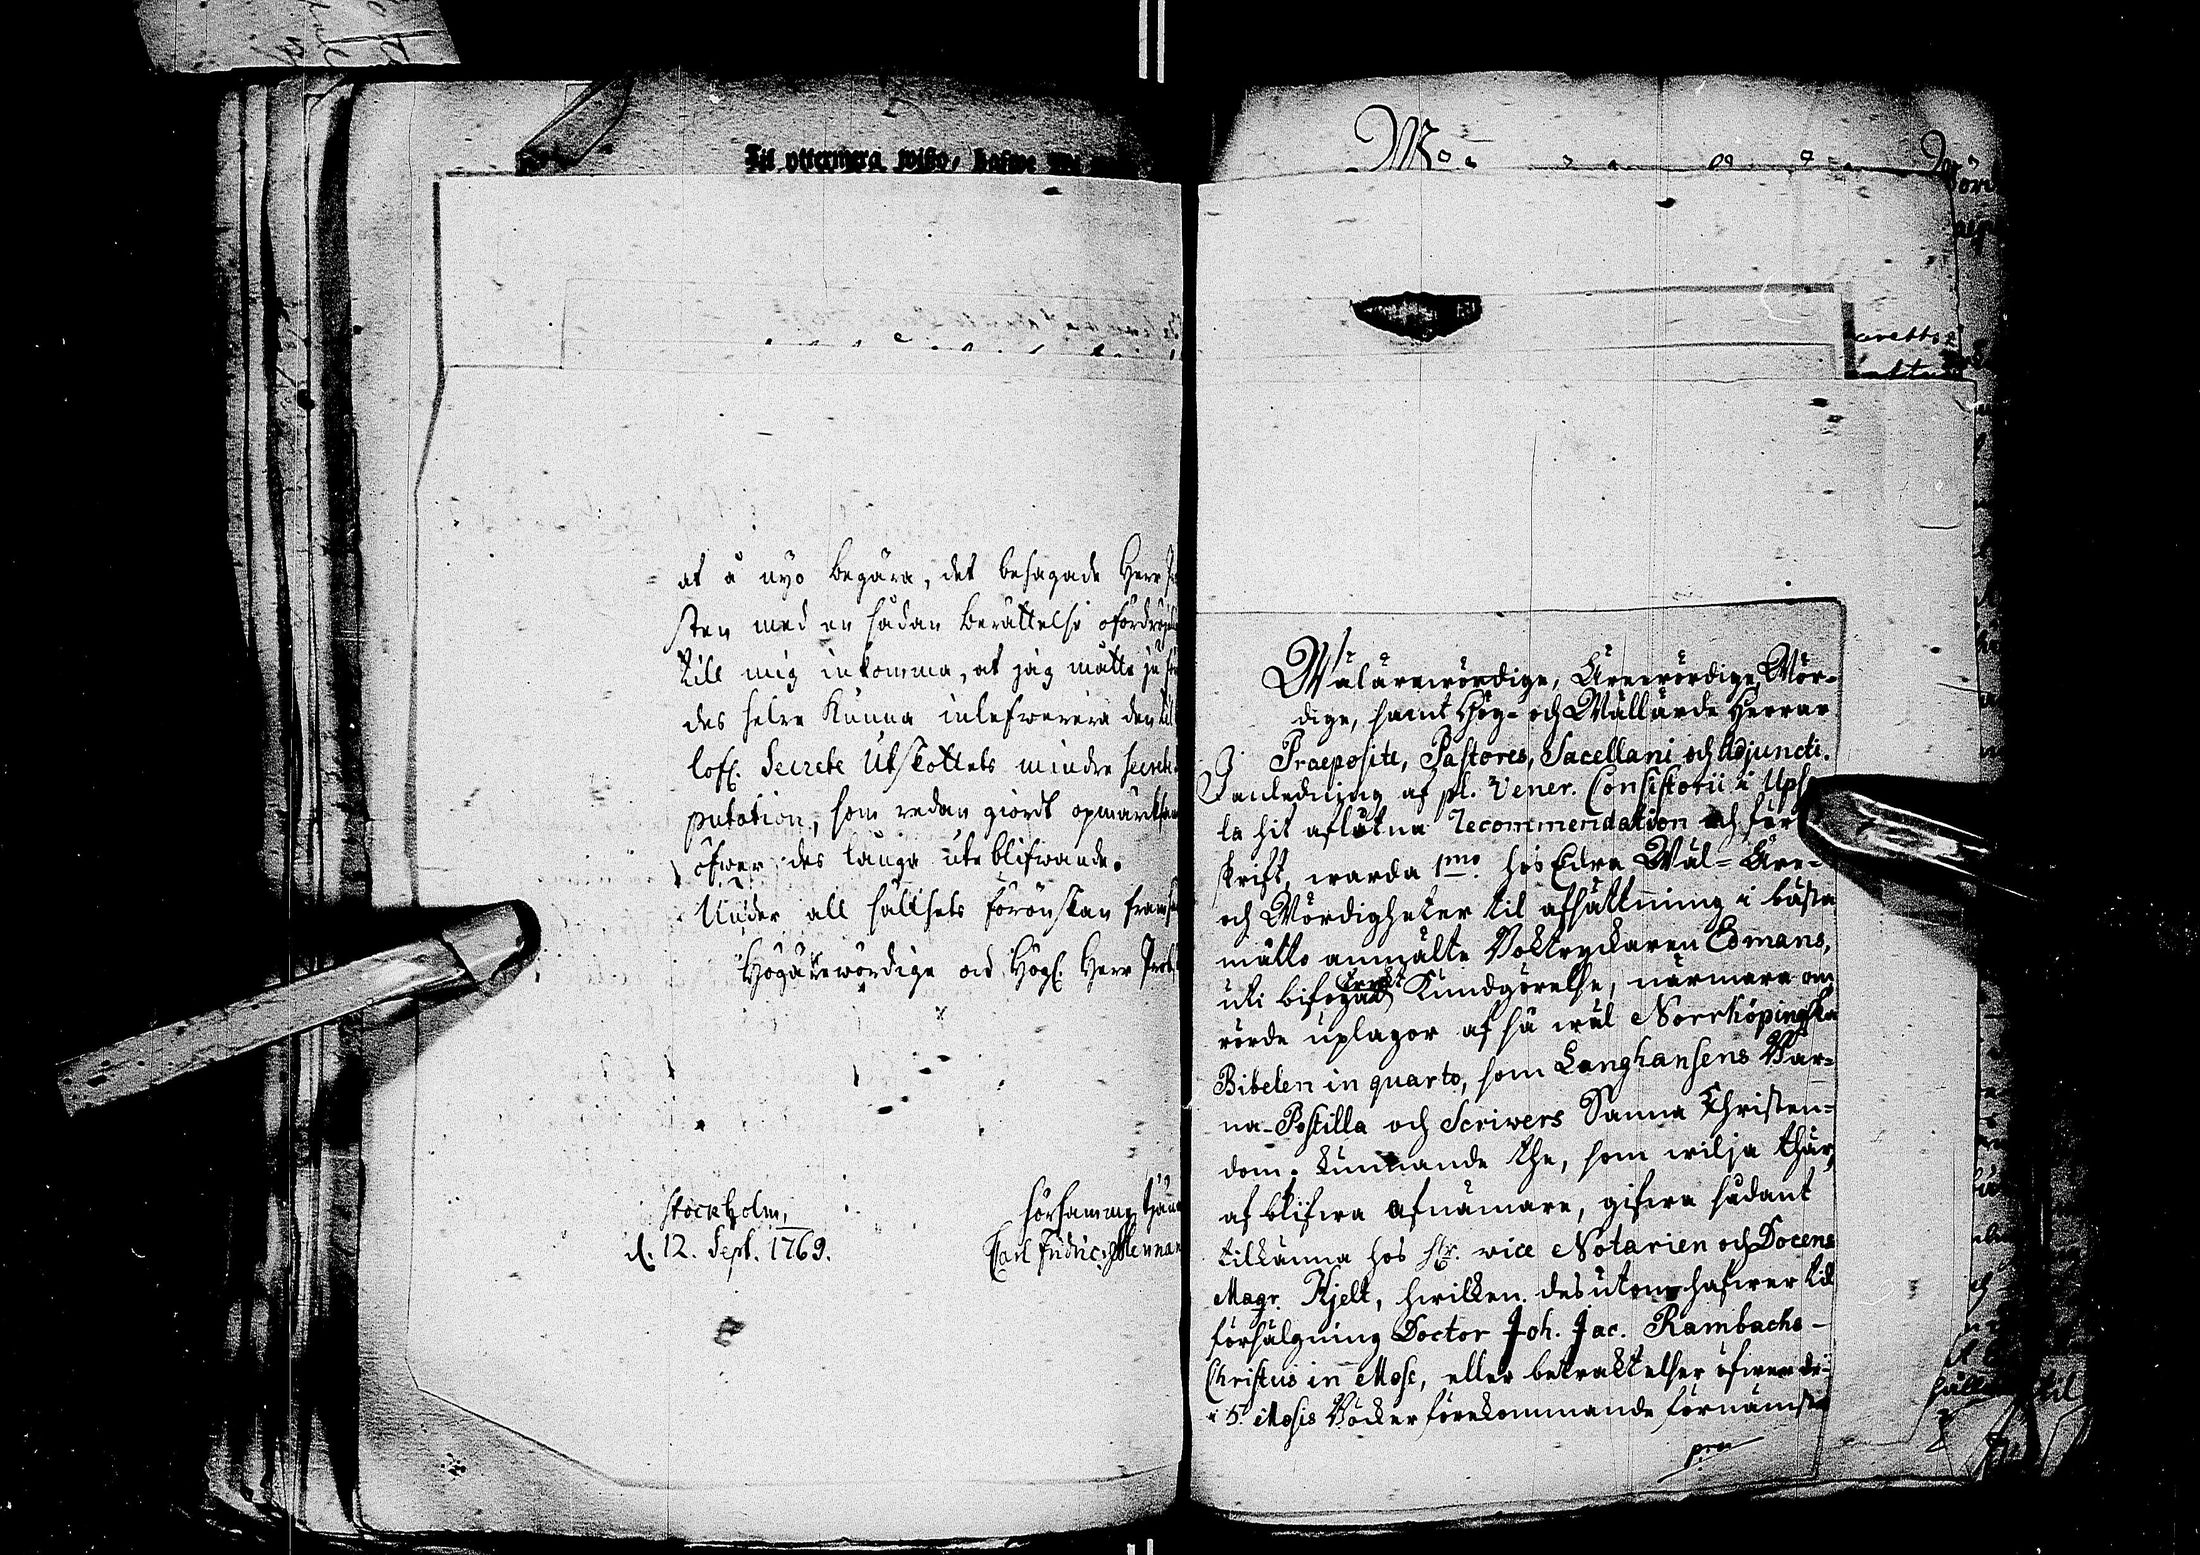 Til yttermera wisso, hafwe
at å nyo begära, det besagade Herr
sten med en sådan berättelse ofördröj
till mig inkomma, at jag måtte ju för
des heldre kunna inlefwerera den til
lofl. Secrete Utskottets mindre secrete
putation, som redan giordt opmärcksam
öfwer des långa uteblifwande.
Under all sällhets förönskan framh
Högärewördige och Högl. Herr Prob
Stockholm,
d. 12. Sept. 1769.
hörsamme tjäna
Carl Fridric Mennan
Wälärewördige, Ärewördige, Wör-
dige, samt Hög- och Wällärde Herrar
Praeposite, Pastores, Sacellani och Adjuncti.
I anledning af pl. Vener. Consistorii i Upsa
la hit aflåtna recommendation och för
skrift, warda 1mo. hos Edra Wäl- Äre-
och Wördigheter til afsättning i bästa
måtto anmälte Boktryckaren Edmans,
uti bifogad tryckt Kundgörelse, närmare om
rörde uplagor af så wäl Norrköpingska
Bibelen in quarto, som Langhansens Bar-
na-Postilla och Scrivers Sanna Christen-
dom. kunnande the, som wilja thär
af blifwa afnämare, gifwa sådant
tilkänna hos Hr. vice Notarien och Docens
Magr. Kjelt, hwilken desutom hafwer til
försälgning Doctor Joh. Jac. Rambachs -
Christus in Mose, eller betraktelser öfwer de
i 5 Mosis Böcker förekommande förnämsta
pro